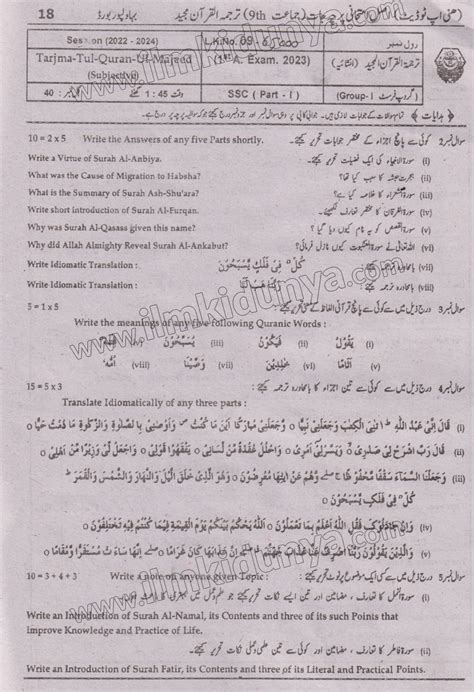 18 بہاولپور بورڈ (جماعت 9th) ترجمہ القرآن مجید
Session (2022 - 2024)
L.K.No. 09
رول نمبر
Tarjma-Tul-Quran-Ul-Majeed
(1st A. Exam. 2023)
ترجمۃ القرآن المجید (انشائیہ)
(Subjective)
کل نمبر : 40
وقت 1:45 گھنٹے
SSC (Part - I)
(Group-I) گروپ فرسٹ
10 = 2 x 5 Write the Answers of any five Parts shortly. کوئی سے پانچ اجزاء کے مختصر جوابات تحریر کیجئے۔ سوال نمبر 2
Write a Virtue of Surah Al-Anbiya. سورۃ الانبیاء کی ایک فضیلت تحریر کیجئے۔ (i)
What was the Cause of Migration to Habsha? ہجرت حبشہ کا سبب کیا تھا؟ (ii)
What is the Summary of Surah Ash-Shu'ara? سورۃ الشعراء کا خلاصہ کیا ہے؟ (iii)
Write short introduction of Surah Al-Furqan. سورۃ الفرقان کا مختصر تعارف لکھئے۔ (iv)
Why was Surah Al-Qasass given this name? سورۃ القصص کو یہ نام کیوں دیا گیا؟ (v)
Why did Allah Almighty Reveal Surah Al-Ankabut? اللہ تعالیٰ نے سورۃ العنکبوت کیوں نازل فرمائی؟ (vi)
Write Idiomatic Translation : كُلٌّ فِي فَلَكٍ يَّسْبَحُوْنَ بامحاورہ ترجمہ کیجئے۔ (vii)
Write Idiomatic Translation : وَهَبْنَا لَهٗ بامحاورہ ترجمہ کیجئے۔ (viii)
5 = 1 x 5 درج ذیل میں سے کوئی سے پانچ قرآنی الفاظ کے معنی تحریر کیجئے۔ سوال نمبر 3
Write the meanings of any five following Quranic Words :
(i) يَقُوْلُ (ii) يَسْبَحُوْنَ (iii) (iv)
(v) اَثَامًا (vi) (vii) وَصَّيْنَا (viii) اُمُّهٗ
15 = 5 x 3 درج ذیل میں سے کوئی سے تین اجزاء کا بامحاورہ ترجمہ کیجئے۔ سوال نمبر 4
Translate Idiomatically of any three parts :
(i) قَالَ اِنِّي عَبْدُ اللّٰهِ اٰتٰنِيَ الْكِتٰبَ وَجَعَلَنِيْ نَبِيًّا ۝ وَّجَعَلَنِيْ مُبٰرَكًا اَيْنَ مَا كُنْتُ وَاَوْصٰنِيْ بِالصَّلٰوةِ وَالزَّكٰوةِ مَا دُمْتُ حَيًّا ۝
(ii) قَالَ رَبِّ اشْرَحْ لِيْ صَدْرِيْ ۝ وَيَسِّرْ لِيْ اَمْرِيْ ۝ وَاحْلُلْ عُقْدَةً مِّنْ لِّسَانِيْ ۝ يَفْقَهُوْا قَوْلِيْ ۝ وَاجْعَلْ لِّيْ وَزِيْرًا مِّنْ اَهْلِيْ ۝
(iii) وَجَعَلْنَا السَّمَآءَ سَقْفًا مَّحْفُوْظًا وَّهُمْ عَنْ اٰيٰتِهَا مُعْرِضُوْنَ ۝ وَهُوَ الَّذِيْ خَلَقَ الَّيْلَ وَالنَّهَارَ وَالشَّمْسَ وَالْقَمَرَ
كُلٌّ فِيْ فَلَكٍ يَّسْبَحُوْنَ ۝
(iv) وَاِنْ جَادَلُوْكَ فَقُلِ اللّٰهُ اَعْلَمُ بِمَا تَعْمَلُوْنَ ۝ اَللّٰهُ يَحْكُمُ بَيْنَكُمْ يَوْمَ الْقِيٰمَةِ فِيْمَا كُنْتُمْ فِيْهِ تَخْتَلِفُوْنَ ۝
(v) وَالَّذِيْنَ يَقُوْلُوْنَ رَبَّنَا اصْرِفْ عَنَّا عَذَابَ جَهَنَّمَ اِنَّ عَذَابَهَا كَانَ غَرَامًا ۝ اِنَّهَا سَآءَتْ مُسْتَقَرًّا وَّمُقَامًا ۝
10 = 3 + 4 + 3 Write a note on anyone given Topic : درج ذیل میں سے کسی ایک موضوع پر نوٹ تحریر کیجئے۔ سوال نمبر 5
Write an Introduction of Surah Al-Namal, its Contents and three of its such Points that
improve Knowledge and Practice of Life.
(ii) سورۃ فاطر کا تعارف ، مضامین اور کوئی سے تین علمی و عملی نکات تحریر کیجئے۔
Write an Introduction of Surah Fatir, its Contents and three of its Literal and Practical Points.
www.ilmkidunya.com
www.ilmkidunya.com
www.ilmkidunya.com